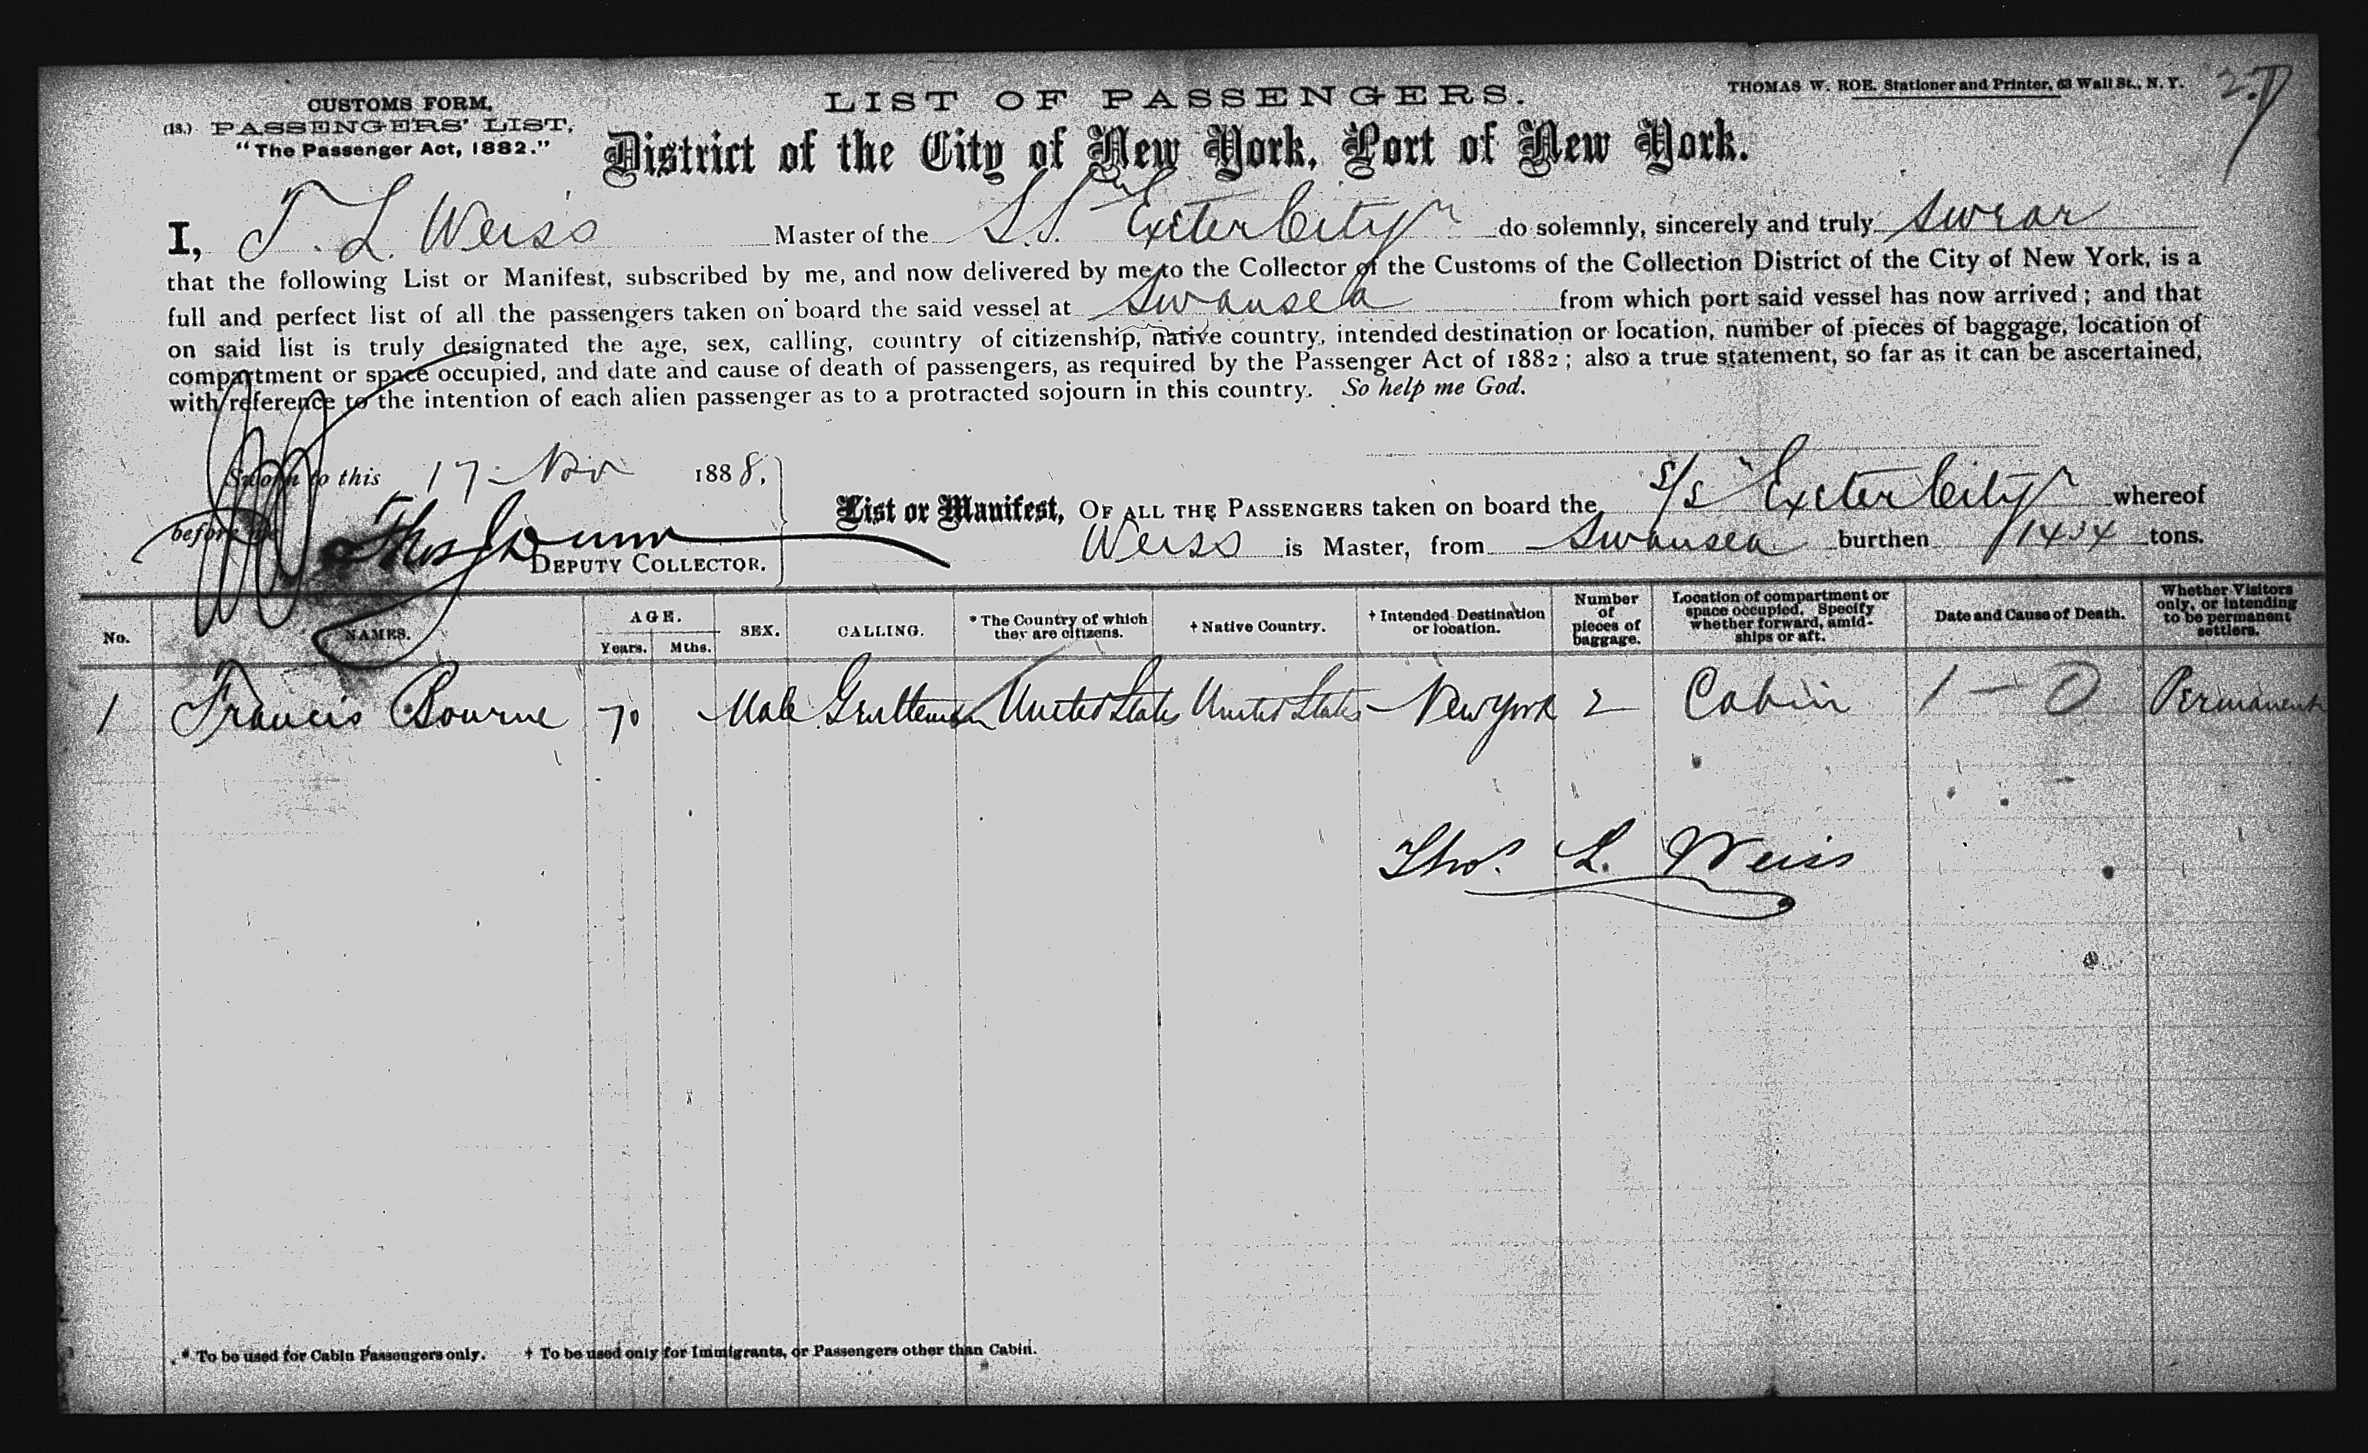 CUSTOMS FORM,
(18.) PASSENGERS' LIST,
"The Passenger Act, 1882."
LIST OF PASSENGERS.
THOMAS W. ROE, Stationer and Printer, 63 Wall St., N. Y.
District of the City of New York, Port of New York.
I, T. L. Weiss Master of the S.S. "Exeter City" do solemnly, sincerely and truly swear
that the following List or Manifest, subscribed by me, and now delivered by me to the Collector of the Customs of the Collection District of the City of New York, is a
full and perfect list of all the passengers taken on board the said vessel at Swansea from which port said vessel has now arrived; and that
on said list is truly designated the age, sex, calling, country of citizenship, native country, intended destination or location, number of pieces of baggage, location of
compartment or space occupied, and date and cause of death of passengers, as required by the Passenger Act of 1882; also a true statement, so far as it can be ascertained,
with reference to the intention of each alien passenger as to a protracted sojourn in this country. So help me God.
Sworn to this 17 Nov 1888,
before me Thos J Dunn
DEPUTY COLLECTOR.
List or Manifest, OF ALL THE PASSENGERS taken on board the S/S "Exeter City" whereof
Weiss is Master, from Swansea burthen 1434 tons.
No. NAMES. AGE. Years. Mths. SEX. CALLING. * The Country of which they are citizens. † Native Country. † Intended Destination or location. Number of pieces of baggage. Location of compartment or space occupied. Specify whether forward, amid-ships or aft. Date and Cause of Death. Whether Visitors only, or intending to be permanent settlers.
1 Francis Bourne 70 Male Gentleman United States United States New York 2 Cabin 1 — 0 Permanent
Thos. L. Weiss
* To be used for Cabin Passengers only. † To be used only for Immigrants, or Passengers other than Cabin.